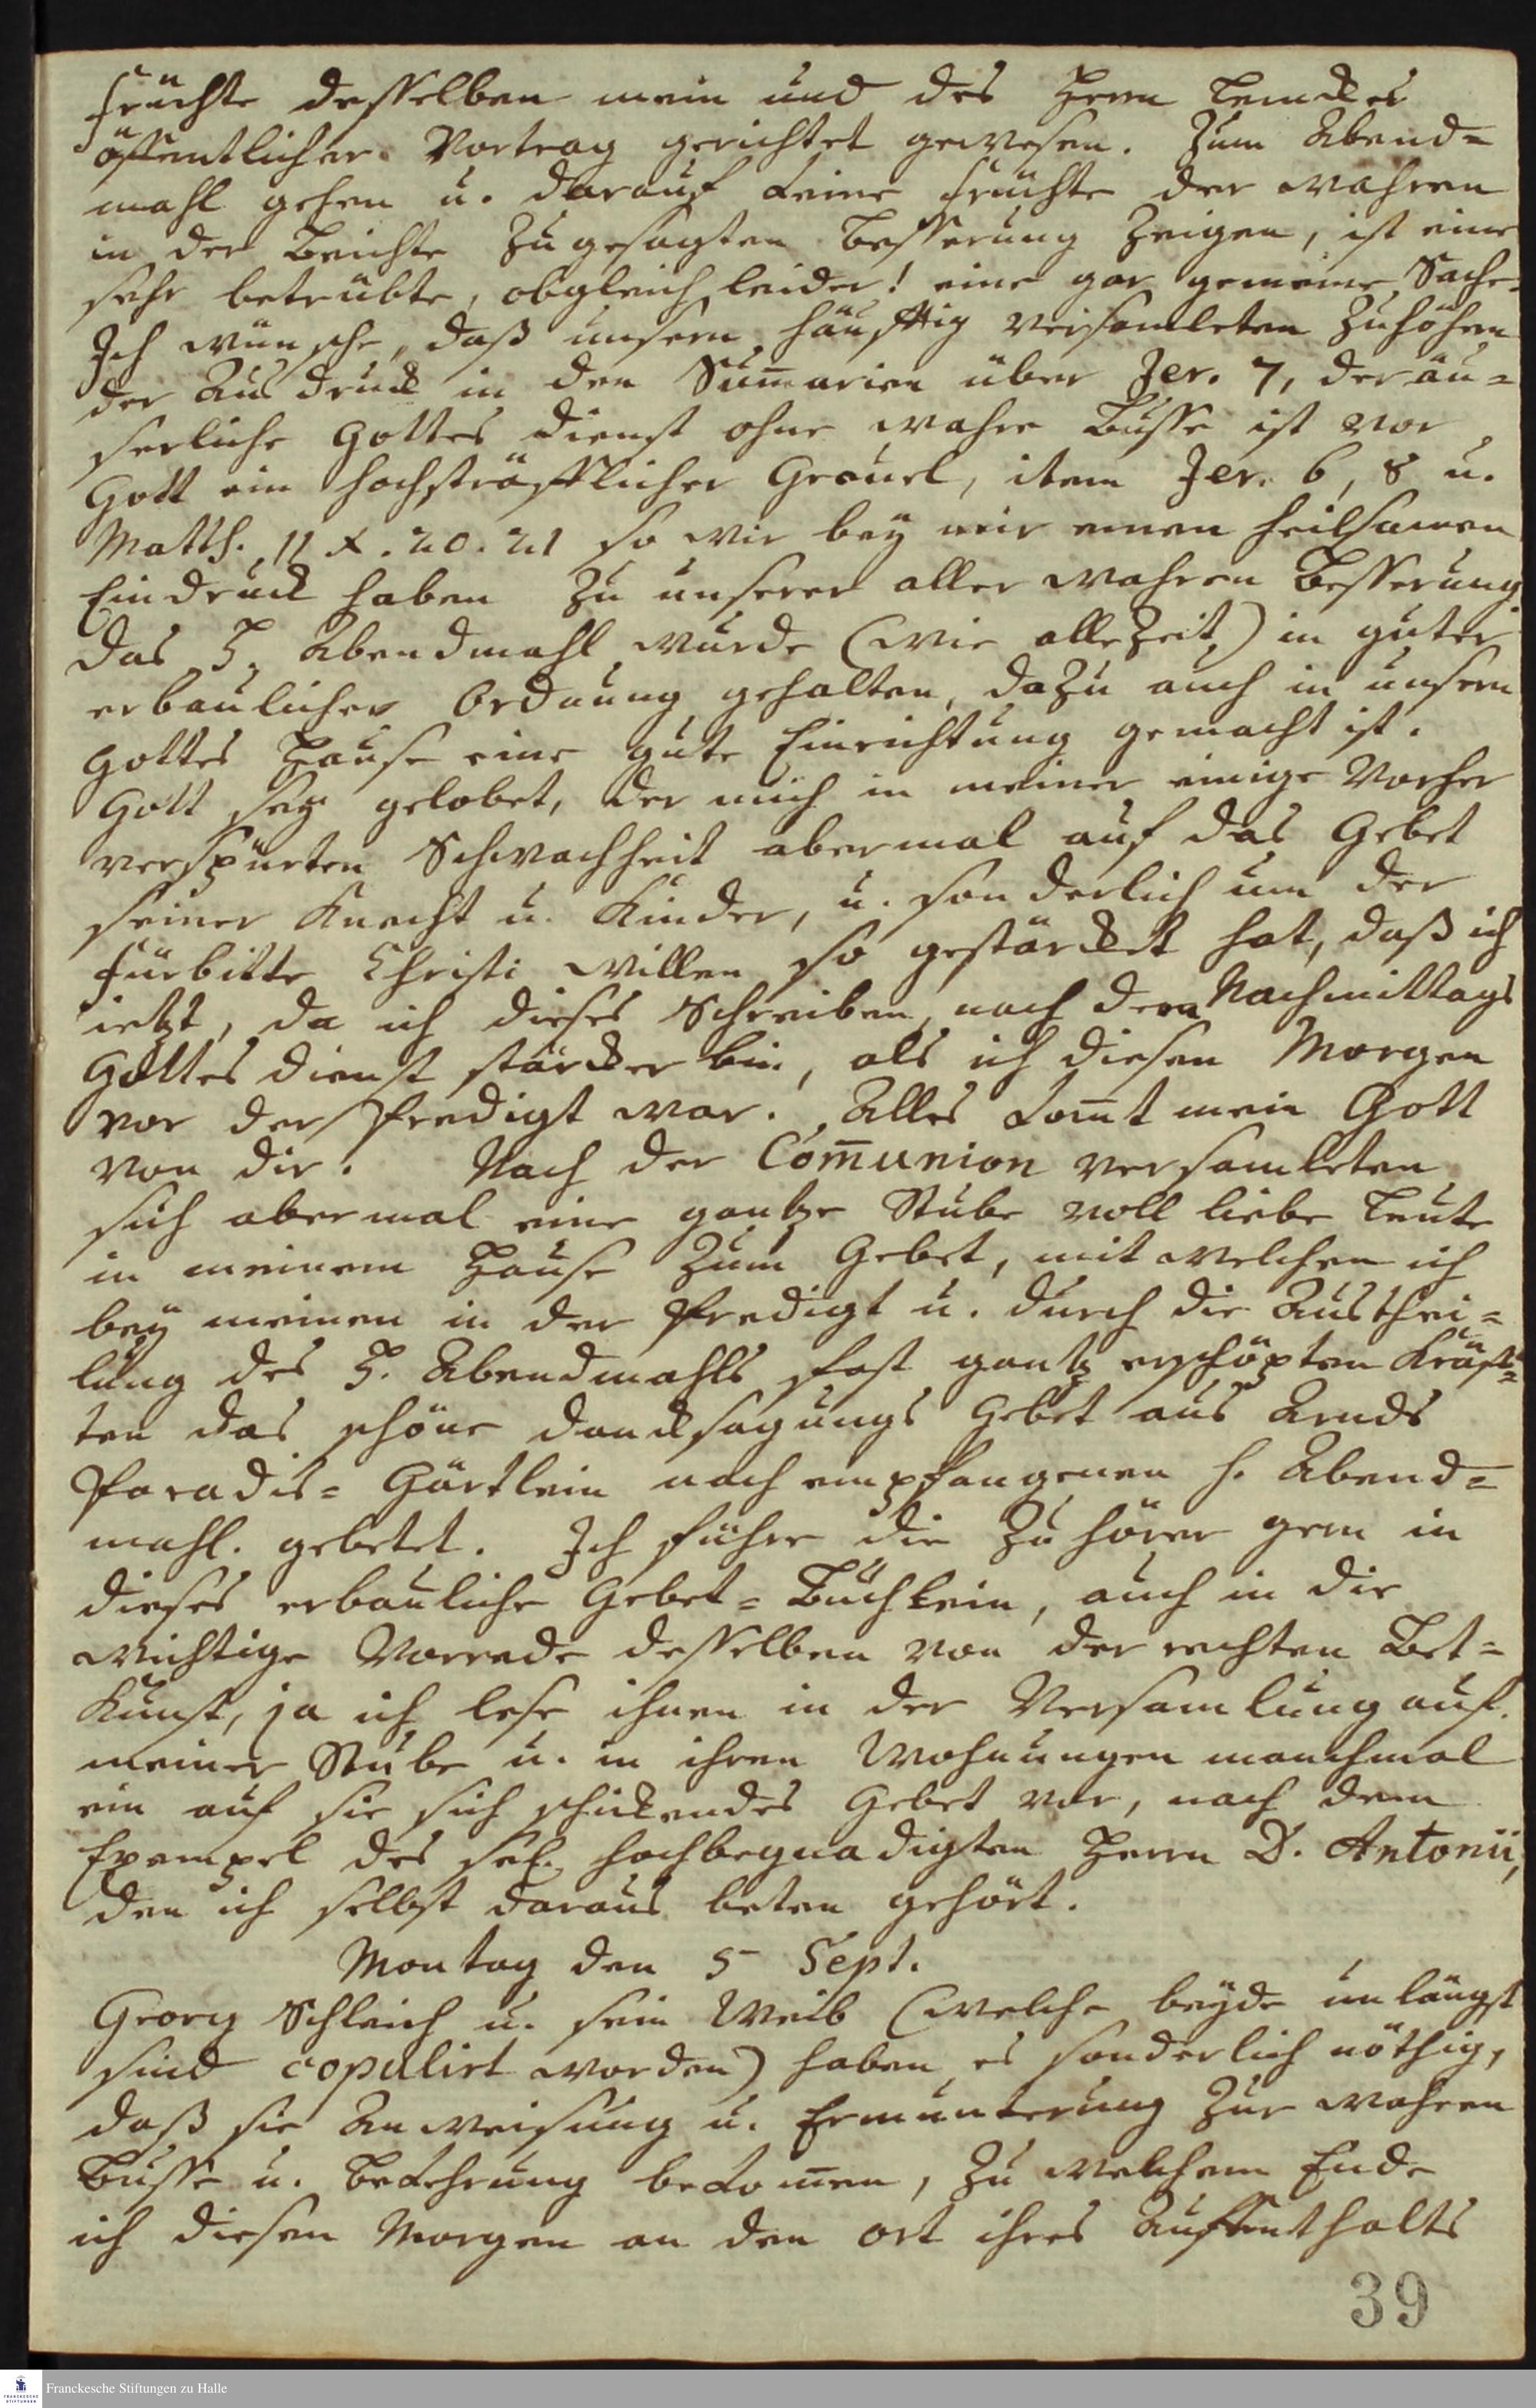 Früchte desselben mein und des Herrn Lemckes
öffentlicher Vortrag gerichtet gewesen. Zum Abend=
mahl gehen u. darauf keine Früchte der wahren
in der Beichte zugesagten Besserung zeigen, ist eine
sehr betrübte, obgleich leider! eine gar gemeine Sache.
Ich wünsche, daß unsern häuffig versamleten Zuhöhern
der Ausdruck in den Sum̅arien über Jer. 7, der äu=
serliche Gottesdienst ohne wahre Busse ist vor
Gott ein hochsträfflicher Greuel, item Jer. 6, 8 u.
Matth. 11 x. 20. 21 so wie bey mir einen heilsamen
Eindruck haben zu unserer aller wahren Besserung
Das H. Abendmahl wurde (wie allezeit) in guter
erbaulicher Ordnung gehalten, dazu auch in unserm
Gottes Hause eine gute Einrichtung gemacht ist.
Gott sey gelobet, der mich in meiner einige Vorher
verspürten Schwachheit abermal auf das Gebet
seiner Knecht u. Kinder, u. sonderlich um der
Fürbitte Christi willen so gestärcket hat, daß ich
ietzt, da ich dieses Schreiben, nach dem Nachmittags
Gottesdienst stärcker bin, als ich diesen Morgen
vor der Predigt war. Alles kom̅t mein Gott
von dir. Nach der Com̅union versamleten
sich abermal eine gantze Stube voll liebe Leute
in meinem Hause zum Gebet, mit welchen ich
bey meinen in der Predigt u. durch die Austhei=
lung des H. Abendmahls fast gantz erschöpten Kräff=
ten das schöne Dancksagungs Gebet aus Arnds
Paradis= Gärtlein nach empfangenen h. Abend=
mahl. gebetet. Ich führe die Zuhörer gern in
dieses erbauliche Gebet= Büchlein, auch in die
wichtige Vorrede desselben von der rechten Bet=
Kunst, ja ich lese ihnen in der Versamlung auf
meiner Stube u. in ihren Wohnungen manchmal
ein auf sie sich schickendes Gebet vor, nach dem
Exempel des sel. hochbegnadigten Herrn D. Antonii,
den ich selbst daraus beten gehört.
Montag den 5 Sept.
Georg Schleich u. sein Weib (welche beyde unlängst
sind copulirt worden) haben es sonderlich nöthig,
daß sie Anweisung u. Ermunterung zur wahren
Busse u. Bekehrung bekom̅en, zu welchem Ende
ich diesen Morgen an den Ort ihres Auffenthalts
39
Franckesche Stiftungen zu Halle